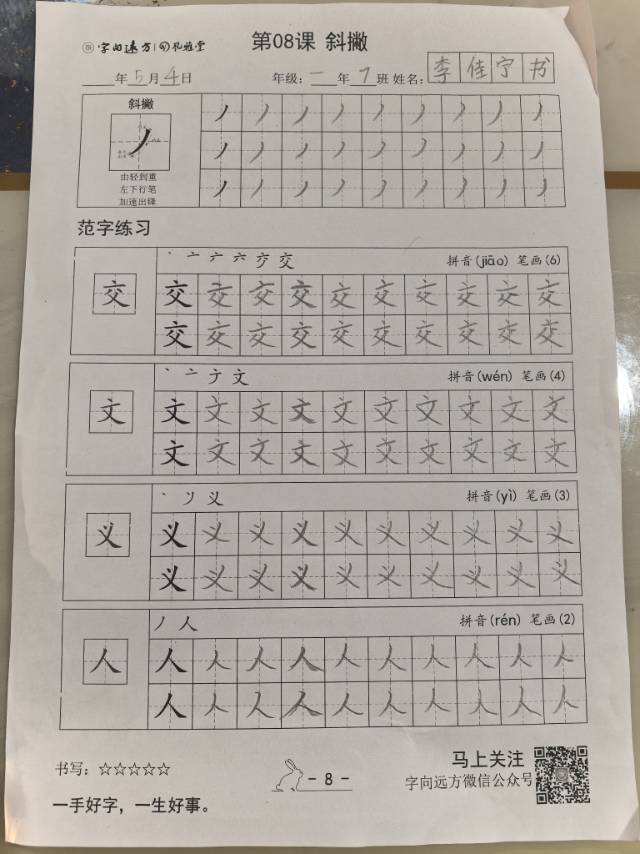 字向远方
第08课 斜撇
____年5月4日 年级：一年7班 姓名：李佳宁书
斜撇
由轻到重
左下行笔
加速出锋
范字练习
丶 亠 六 六 亣 交 拼音(jiāo) 笔画(6)
交 交 交 交 交 交 交 交 交 交 交
交 交 交 交 交 交 交 交 交 交
丶 亠 亣 文 拼音(wén) 笔画(4)
文 文 文 文 文 文 文 文 文 文 文
文 文 文 文 文 文 文 文 文 文
丶 丷 义 拼音(yì) 笔画(3)
义 义 义 义 义 义 义 义 义 义 义
义 义 义 义 义 义 义 义 义 义
丿 人 拼音(rén) 笔画(2)
人 人 人 人 人 人 人 人 人 人 人
人 人 人 人 人 人 人 人 人 人
书写：☆☆☆☆☆
- 8 -
马上关注
字向远方微信公众号
一手好字，一生好事。